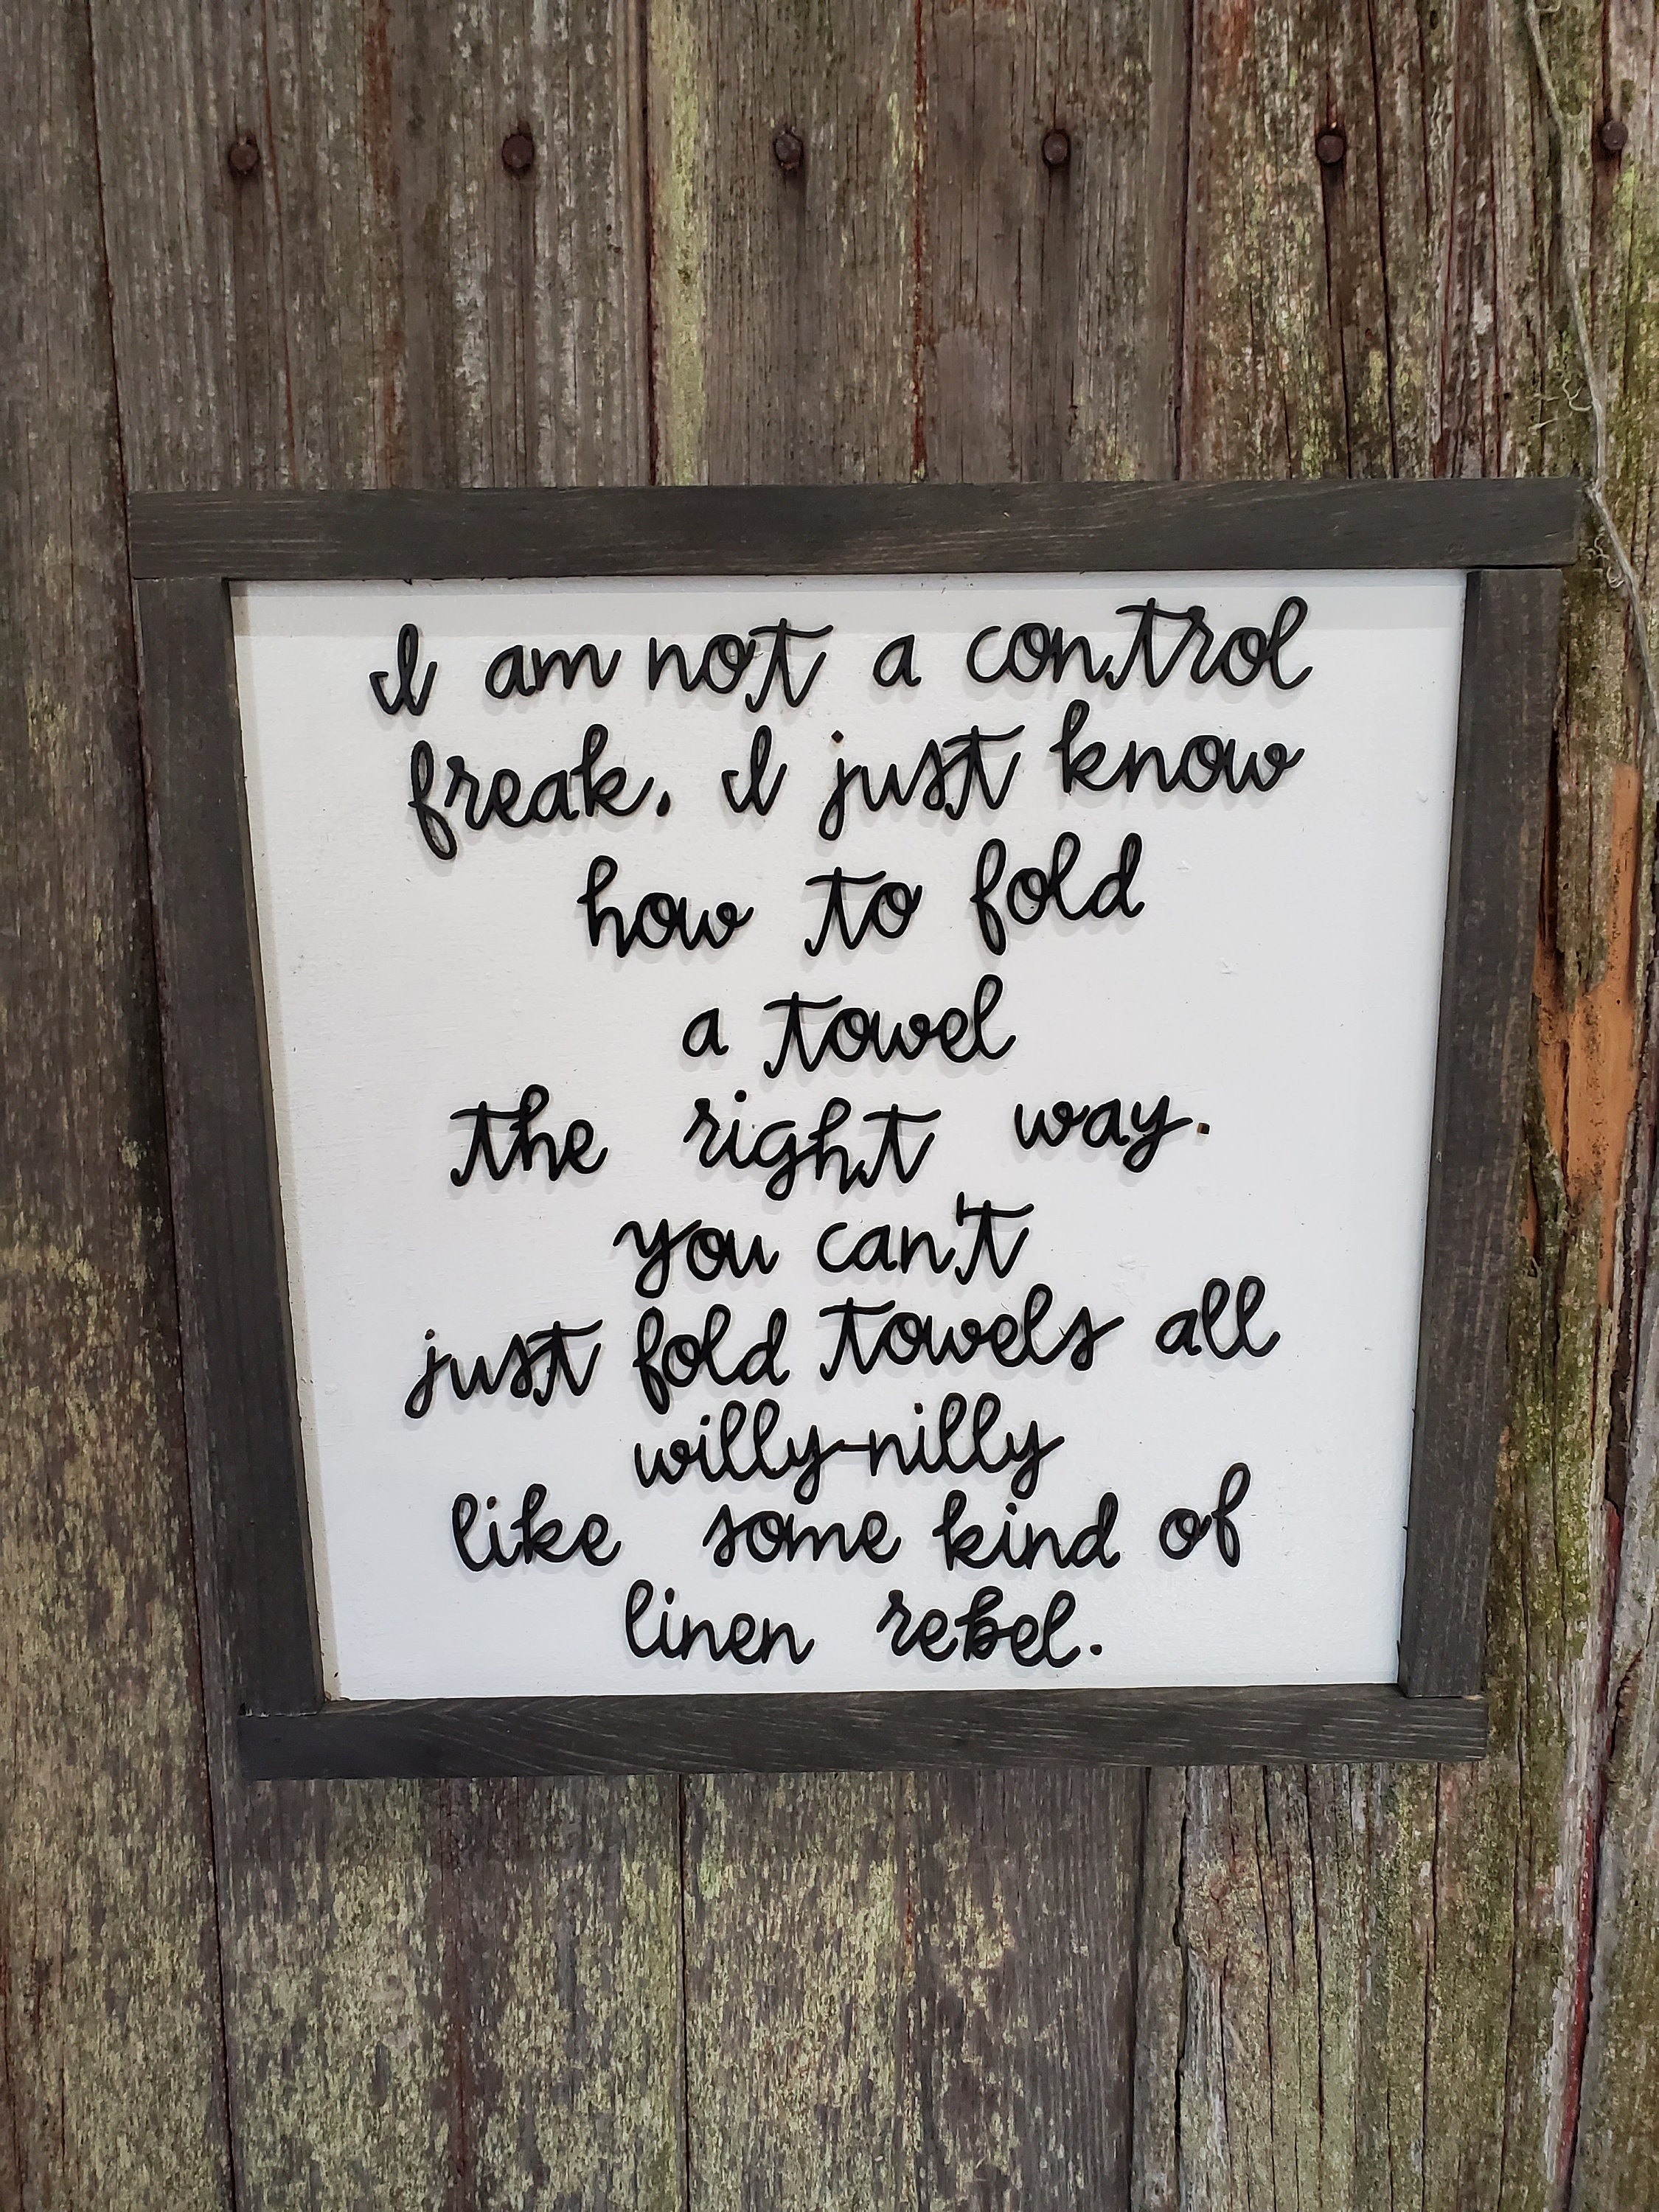 I am not a control
freak. I just know
how to fold
a towel
the right way.
you can't
just fold towels all
willy-nilly
like some kind of
linen rebel.